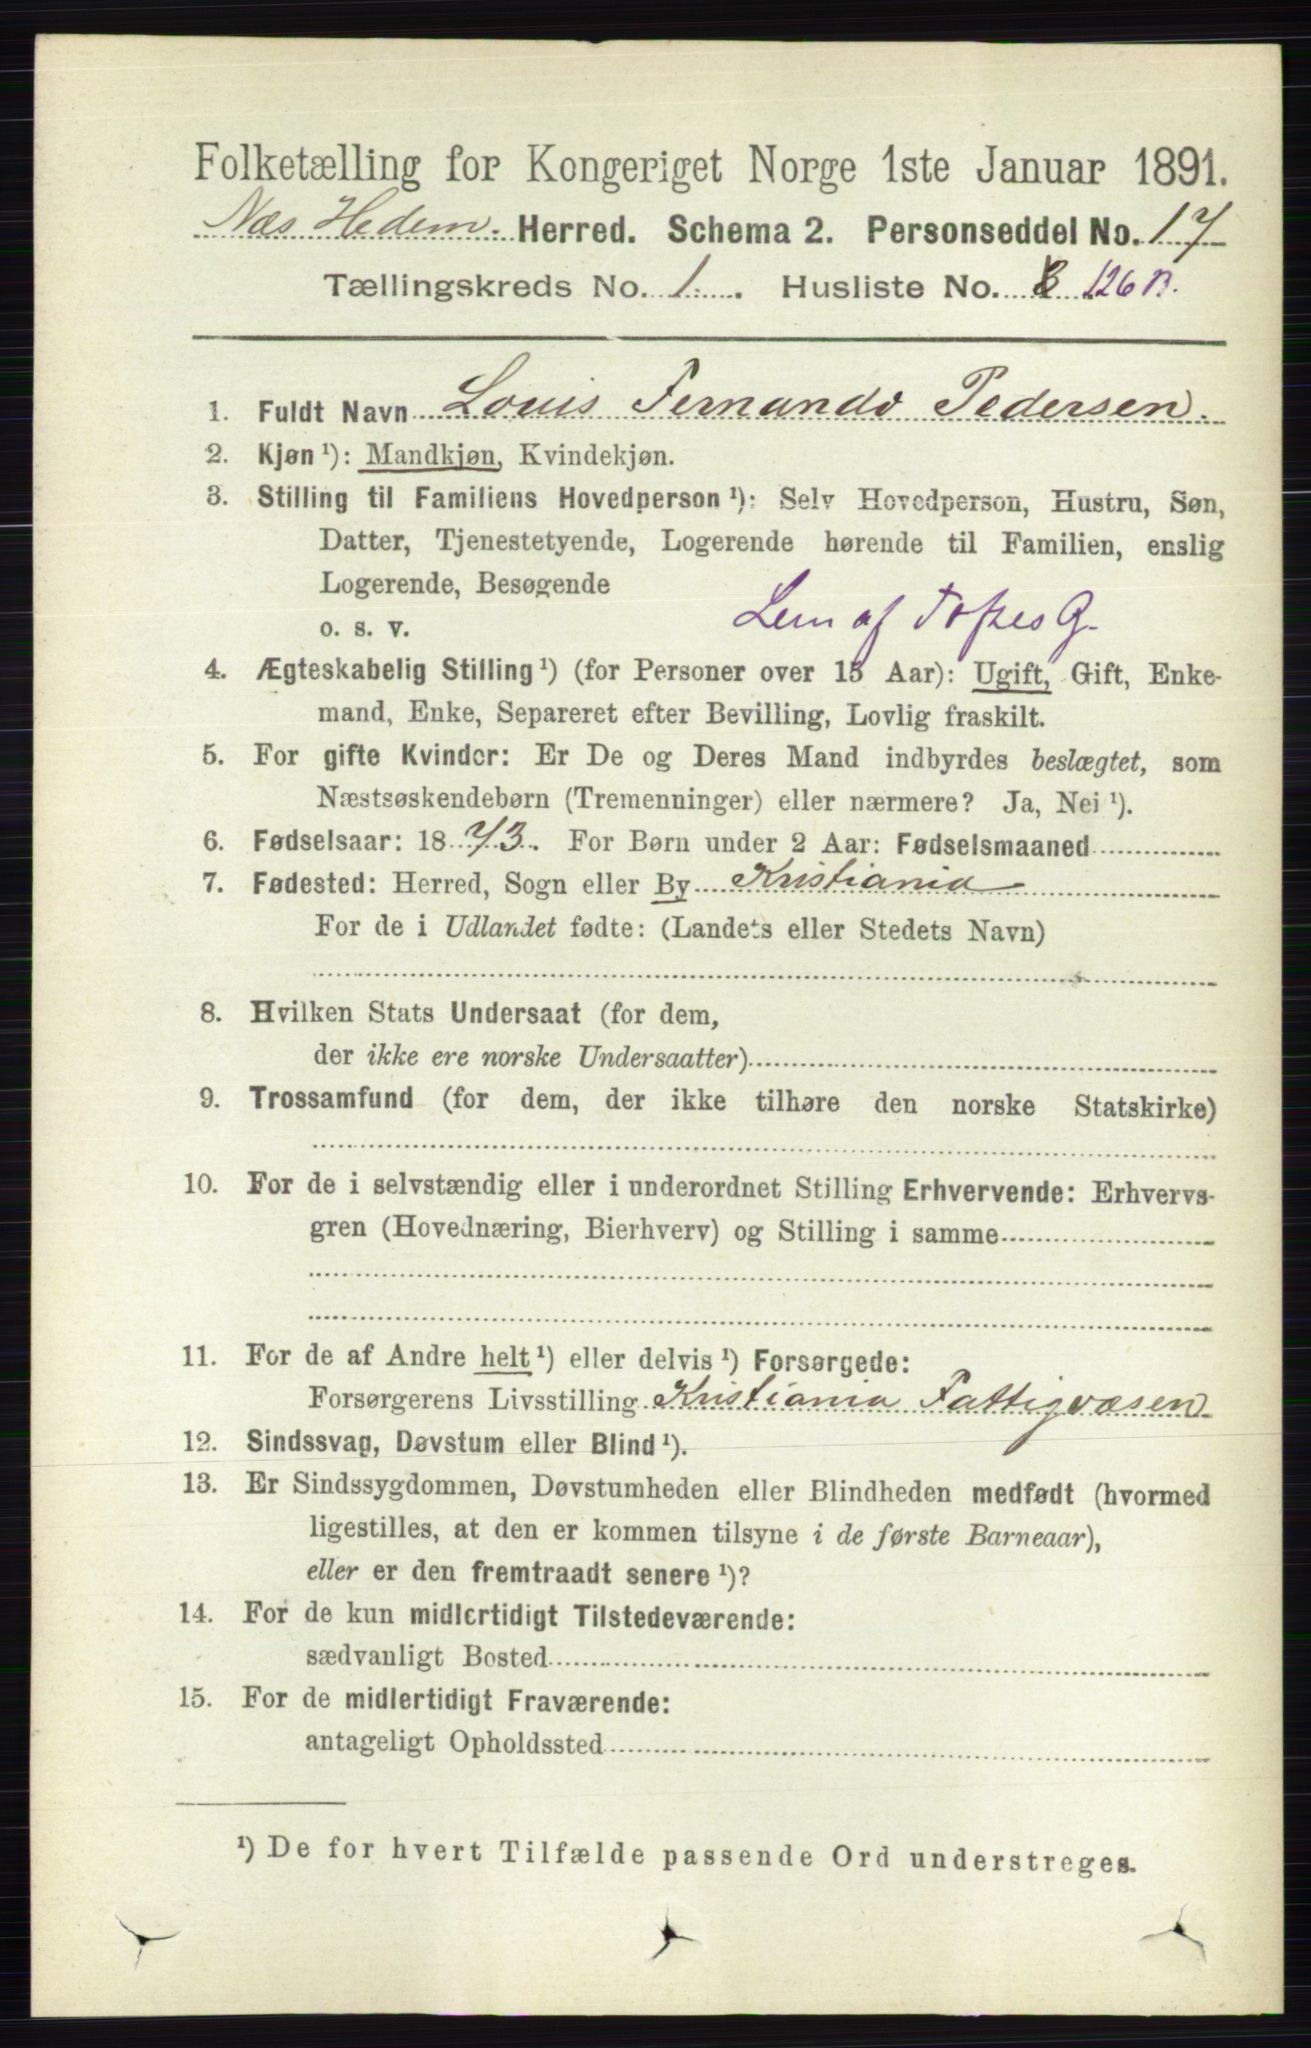 Folketælling for Kongeriget Norge 1ste Januar 1891.
Næs Hedem. Herred. Schema 2. Personseddel No. 17
Tællingskreds No. 1. Husliste No. 126 B.
1. Fuldt Navn Louis Fernando Pedersen.
2. Kjøn ¹): Mandkjøn, Kvindekjøn.
3. Stilling til Familiens Hovedperson ¹): Selv Hovedperson, Hustru, Søn,
Datter, Tjenestetyende, Logerende hørende til Familien, enslig
Logerende, Besøgende
o. s. v. Lem af Toftes G.
4. Ægteskabelig Stilling ¹) (for Personer over 15 Aar): Ugift, Gift, Enke-
mand, Enke, Separeret efter Bevilling, Lovlig fraskilt.
5. For gifte Kvinder: Er De og Deres Mand indbyrdes beslægtet, som
Næstsøskendebørn (Tremenninger) eller nærmere? Ja, Nei ¹).
6. Fødselsaar: 1873. For Børn under 2 Aar: Fødselsmaaned
7. Fødested: Herred, Sogn eller By Kristiania
For de i Udlandet fødte: (Landets eller Stedets Navn)
8. Hvilken Stats Undersaat (for dem,
der ikke ere norske Undersaatter)
9. Trossamfund (for dem, der ikke tilhøre den norske Statskirke)
10. For de i selvstændig eller i underordnet Stilling Erhvervende: Erhvervs-
gren (Hovednæring, Bierhverv) og Stilling i samme
11. For de af Andre helt ¹) eller delvis ¹) Forsørgede:
Forsørgerens Livsstilling Kristiania Fattigvæsen
12. Sindssvag, Døvstum eller Blind ¹).
13. Er Sindssygdommen, Døvstumheden eller Blindheden medfødt (hvormed
ligestilles, at den er kommen tilsyne i de første Barneaar),
eller er den fremtraadt senere ¹)?
14. For de kun midlertidigt Tilstedeværende:
sædvanligt Bosted
15. For de midlertidigt Fraværende:
antageligt Opholdssted
¹) De for hvert Tilfælde passende Ord understreges.